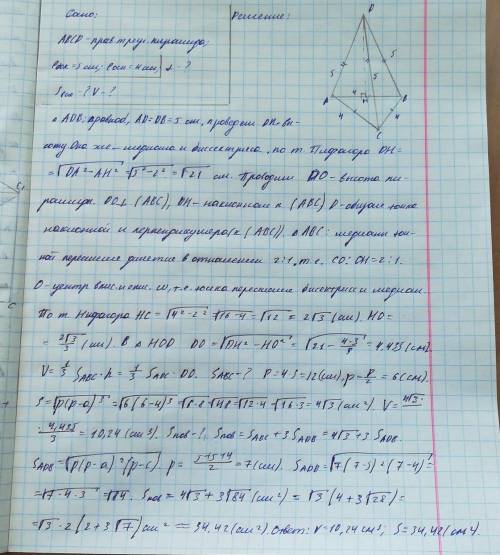 Дано: Решение:
ABCD – прав. треуг. пирамида;
бок = 5 см; осн = 4 см; h - ?
Sпов - ? V - ?
D
5 5 5
A 4 B
4 4
C
△ ADB: провод, AD=DB=5 см, проводим DH – вы-
соту. Она же – медиана и биссектриса, по т. Пифагора DH=
= √DA²–AH² = √5²–2² = √21 см. Проводим DO – высота пи-
рамиды. DO⊥(ABC), DH – наклонная к (ABC) D – общая точка
наклонной и перпендикуляра (к (ABC)). △ABC: медианы точ-
кой пересечения делятся в отношении 2:1, т.е. CO:OH=2:1.
O – центр впис. и опис. т.е. точка пересечения биссектрис и медиан.
По т. Пифагора HC = √4²–2² = √16–4 = √12 = 2√3 (см). HO=
= 2√3/3 (см). В △ HOD DO = √DH²–HO² = √21 – 4·3/9 = 4,435 (см).
V = 1/3 SABC·h = 1/3 SABC·DO. SABC - ? P=4·3=12(см), p=P/2=6(см).
S = √p(p–a)³ = √6(6–4)³ = √6·8 = √48 = √12·4 = √16·3 = 4√3 (см²). V = 4√3·
·4,435/3 = 10,24 (см³). Sпов - ?, Sпов = SABC + 3SADB = 4√3 + 3 SADB.
SADB = √p(p–a)²(p–c). p = 5+5+4/2 = 7(см). SADB = √7(7–5)²(7–4) =
= √7·4·3 = √84. Sпов = 4√3 + 3√84 (см²) = √3(4+3√28) =
= √3·2(2+3√7) см² = 34,42 (см²). Ответ: V=10,24 см³; S=34,42 (см²).